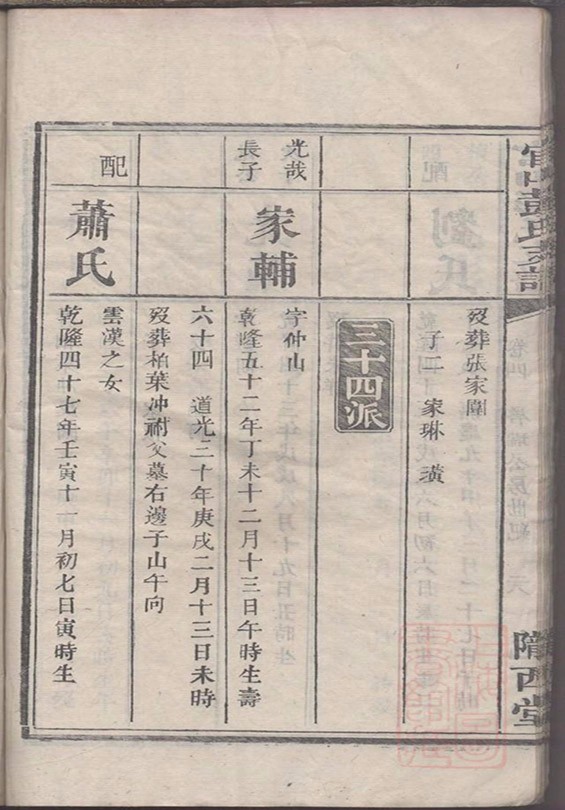 彭氏支譜
卷四
隴西堂
歿葬張家圍
子二 家琳 璜
三十四派
光哉
長子
家輔
字仲山
乾隆五十二年丁未十二月十三日午時生壽
六十四 道光三十年庚戌二月十三日未時
歿葬柏葉沖祔父墓右邊子山午向
配
蕭氏
雲漢之女
乾隆四十七年壬寅十一月初七日寅時生